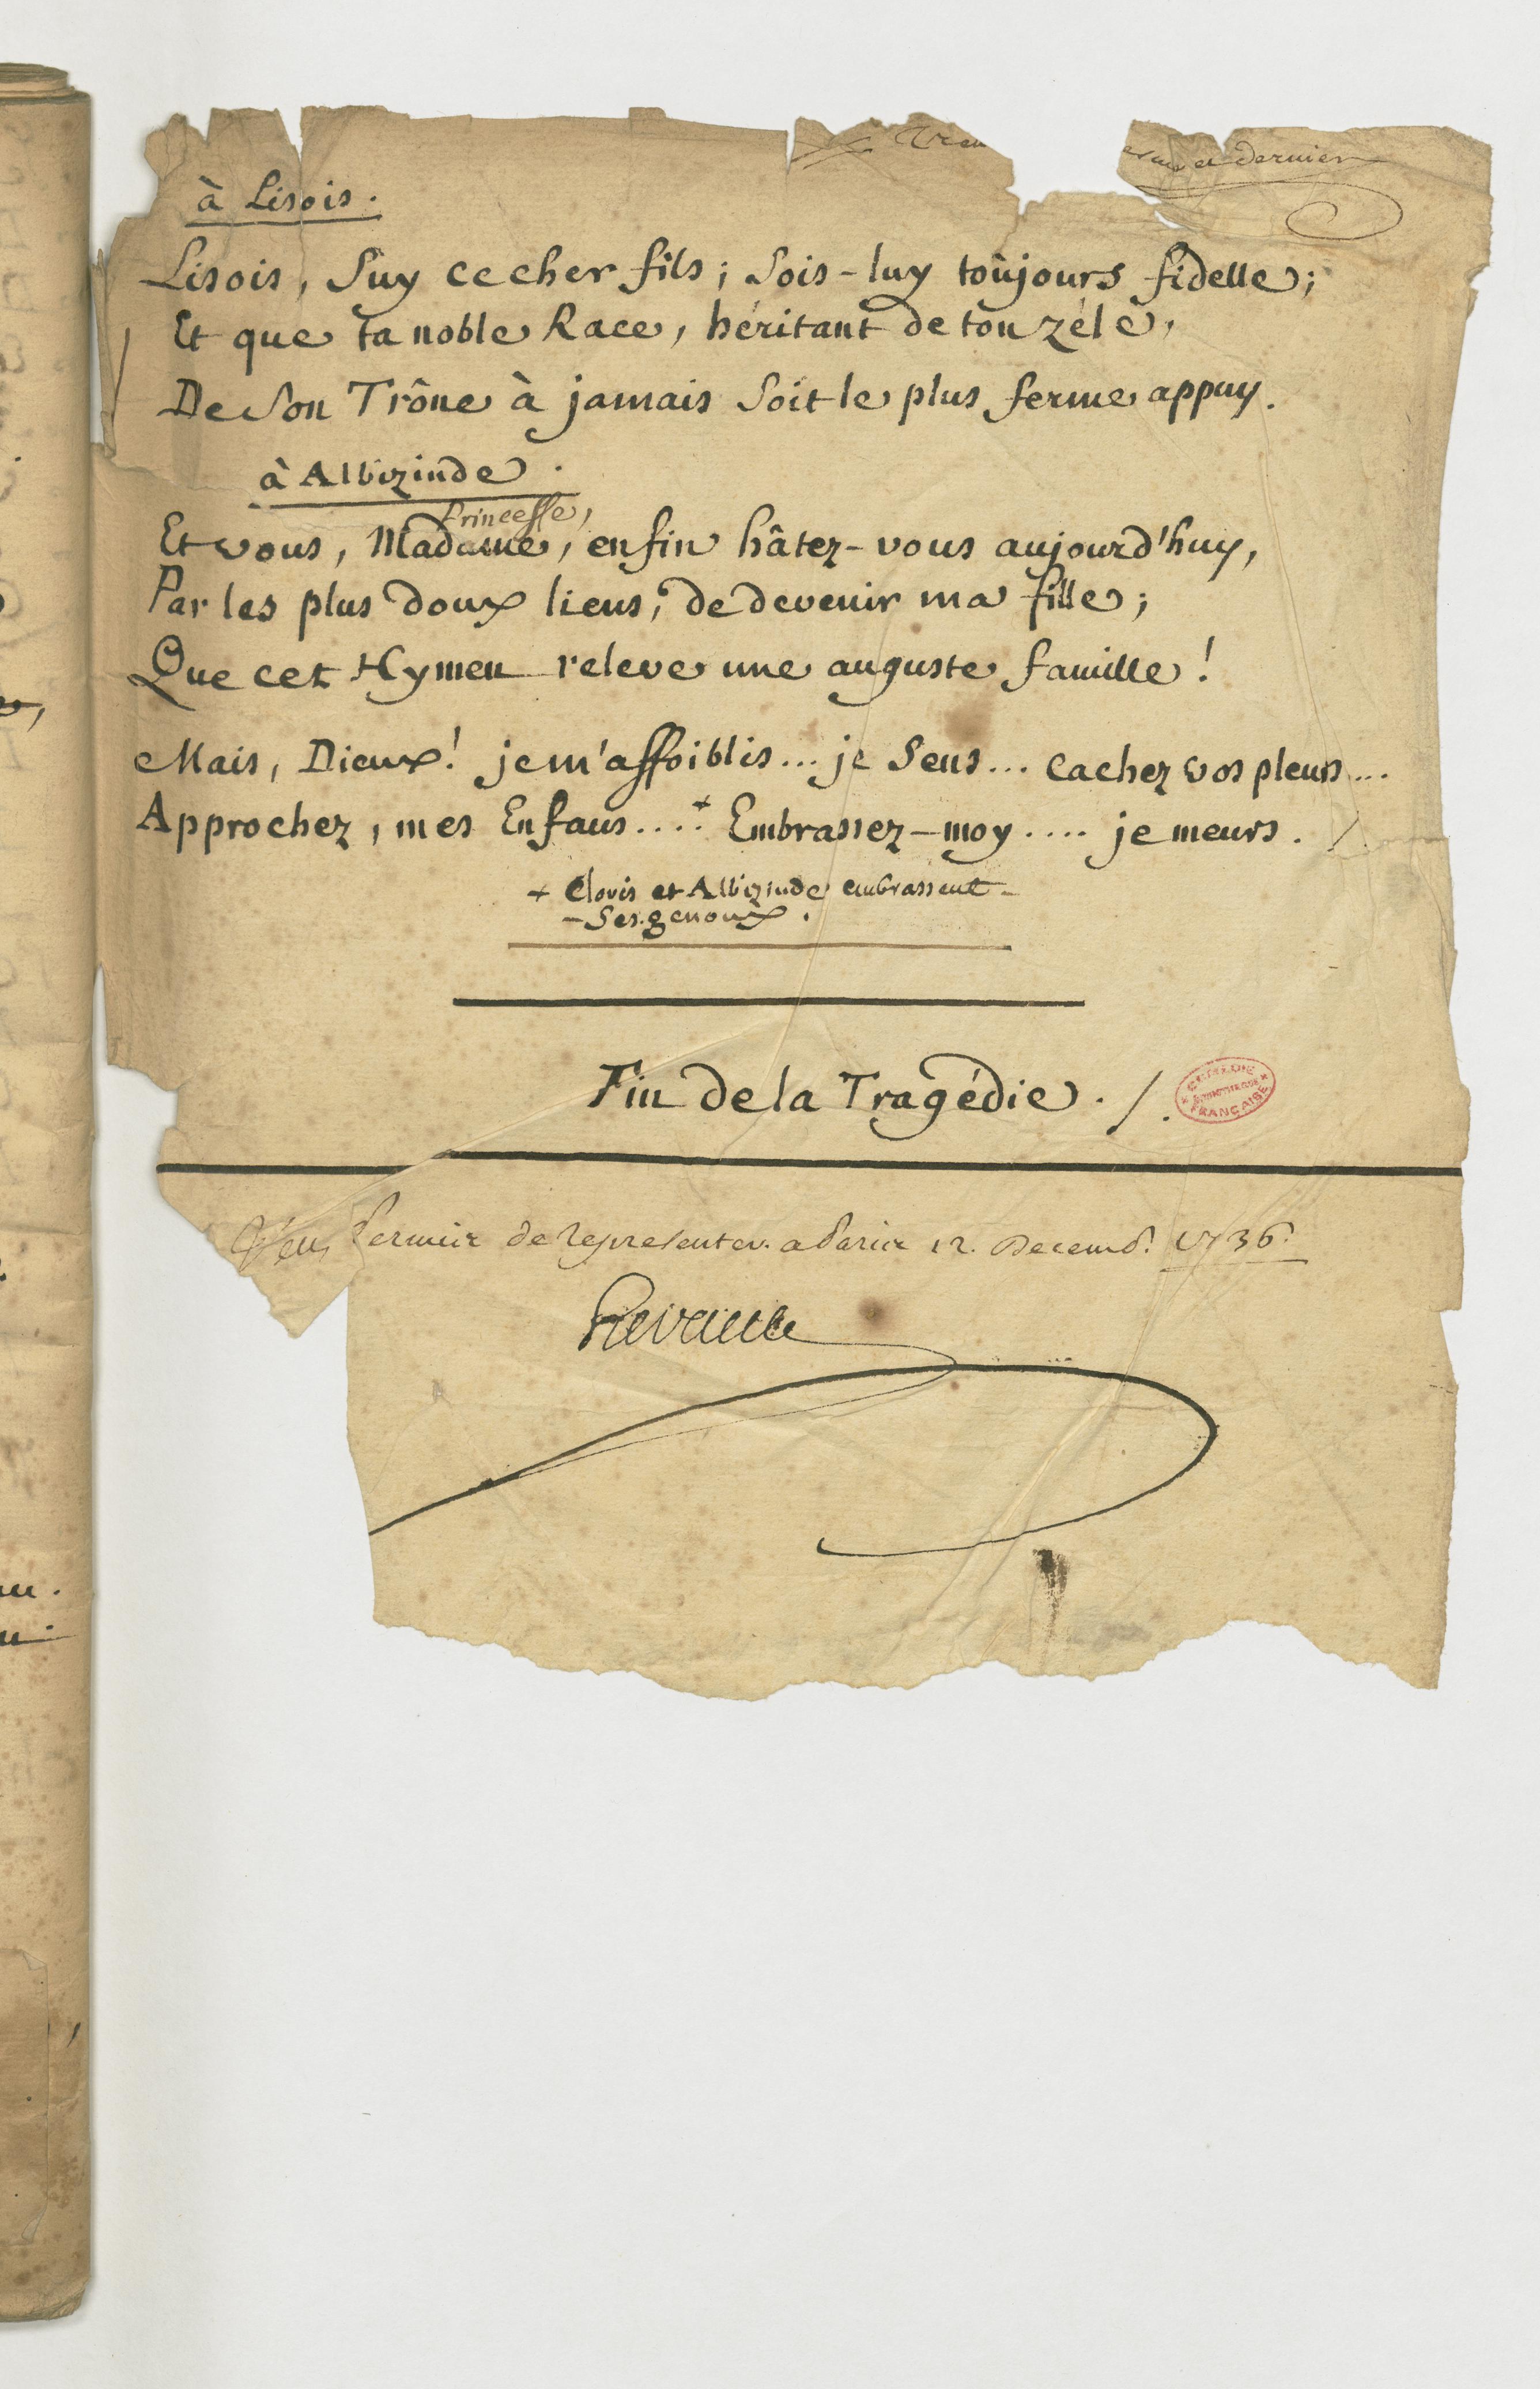 et dernier
à Lisois.
Lisois, Suy ce cher fils ; Sois-luy toûjours fidelle ;
Et que ta noble Race, héritant de ton zéle,
De Son Trône à jamais Soit le plus ferme appuy.
à Albizinde.
Princesse,
Et vous, Madame, enfin hâtez-vous aujourd'huy,
Par les plus doux liens, de devenir ma fille ;
Que cet Hymen releve une auguste famille !
Mais, Dieux ! je m'affoiblis... je Sens... cachez vos pleurs...
Approchez, mes Enfans....+ Embrassez-moy.... je meurs. /.
+ Clovis et Albizinde embrassent
Ses genoux.
Fin de la Tragédie. /.
COMEDIE FRANÇAISE
permis de representer. a Paris 12. Decemb. 1736.